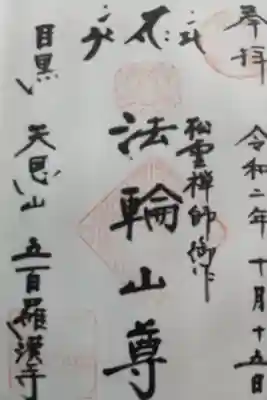 奉拝
令和二年十月十五日
松雲禅師御作
法輪山尊
目黒 天恩山 五百羅漢寺